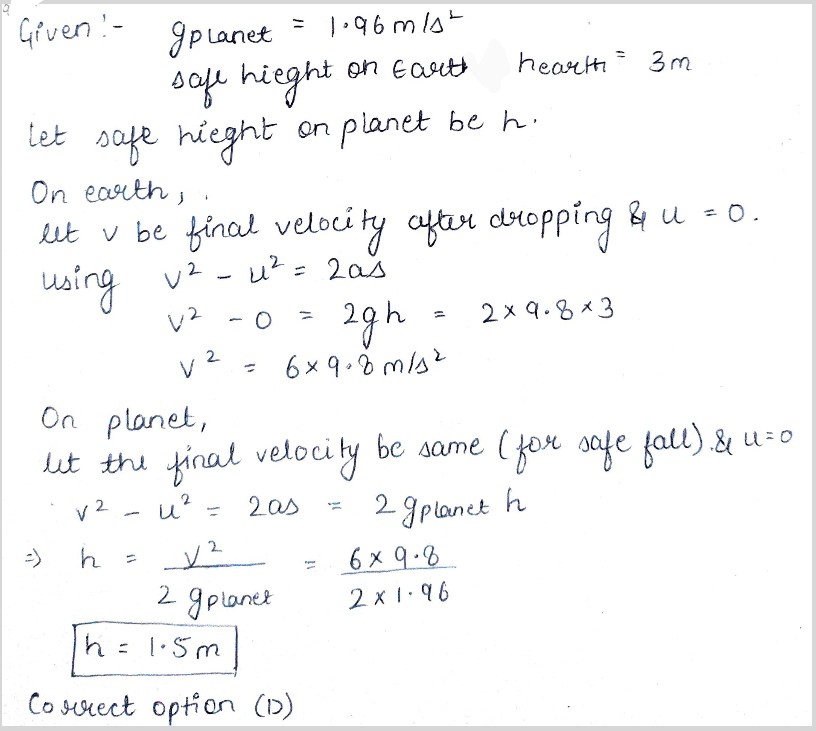 Given :- gplanet = 1.96 m/s²
safe hieght on Earth hearth = 3m
let safe hieght on planet be h.
On earth,
let v be final velocity after dropping & u = 0.
using v² - u² = 2as
v² - 0 = 2gh = 2 x 9.8 x 3
v² = 6 x 9.8 m/s²
On planet,
let the final velocity be same (for safe fall) & u=0
v² - u² = 2as = 2 gplanet h
=> h = v² / 2 gplanet = 6 x 9.8 / 2 x 1.96
h = 1.5m
Correct option (D)